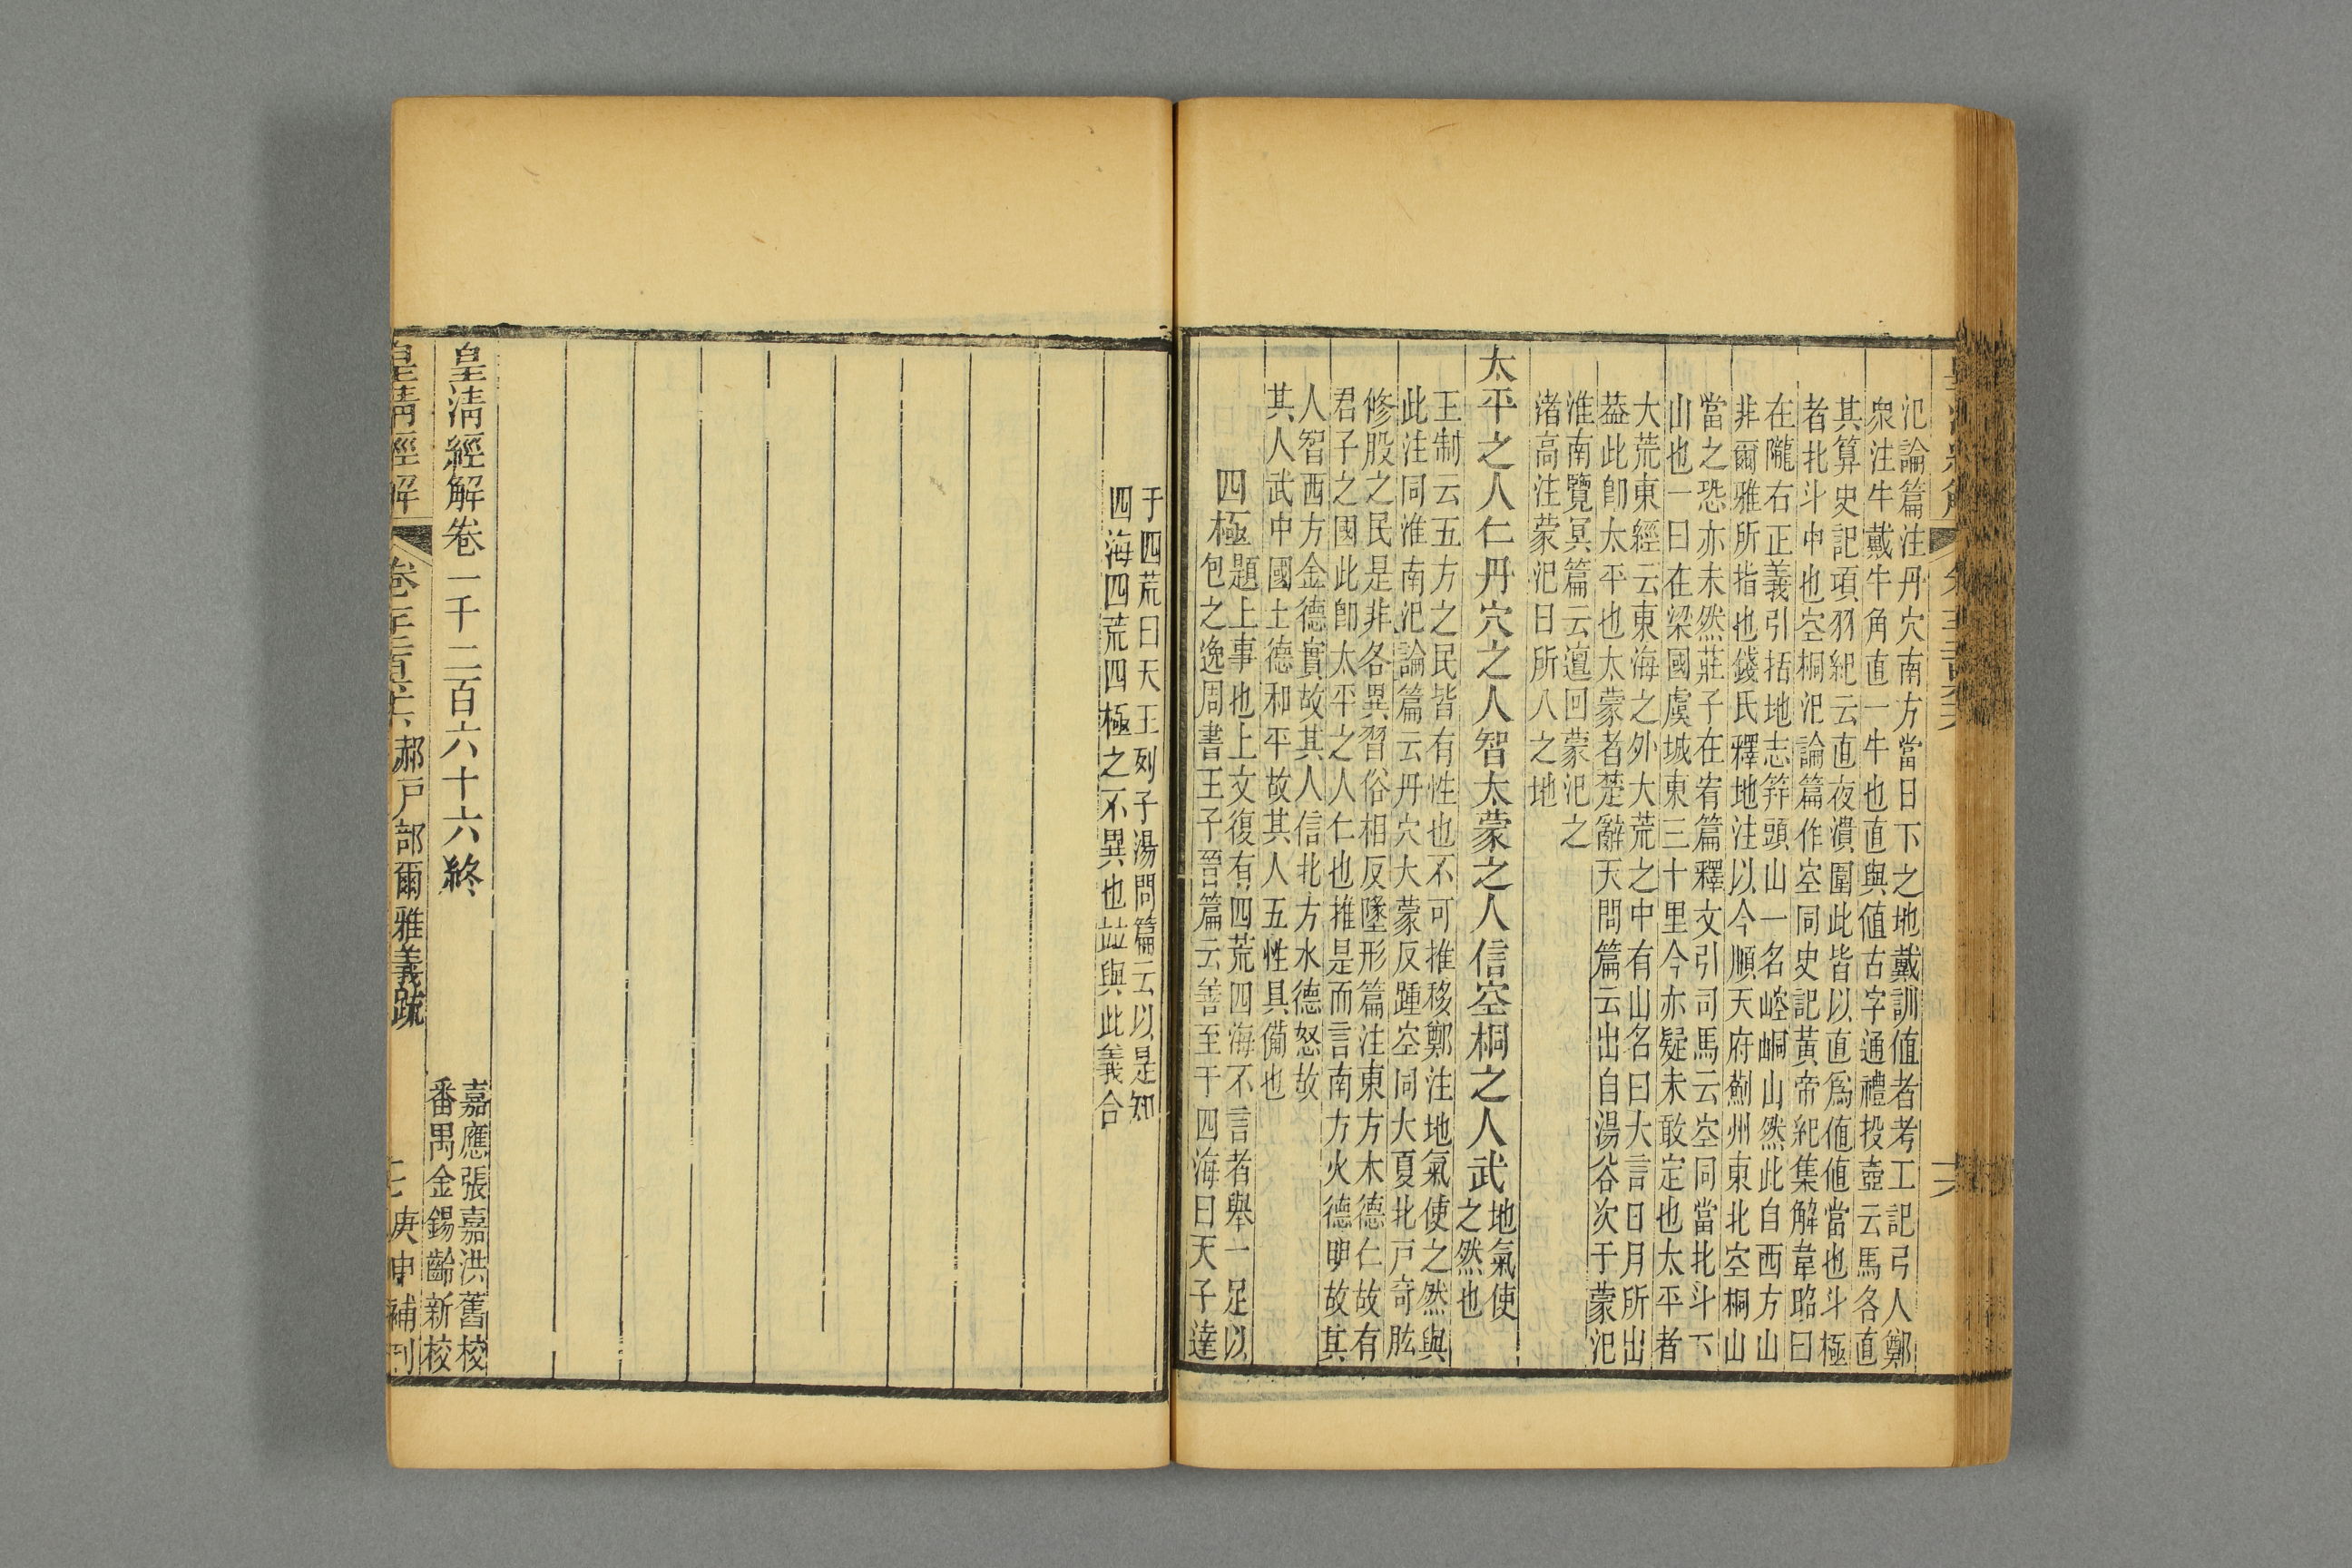 氾論篇注丹穴南方當日下之地戴訓值者考工記弓人鄭
衆注牛戴牛角直一牛也直與値古字通禮投壺云馬各直
其算史記項羽紀云直夜潰圍此皆以直爲値値當也斗極
者北斗中也空桐氾論篇作空同史記黃帝紀集解韋昭曰
在隴右正義引括地志笄頭山一名崆峒山然此自西方山
非爾雅所指也錢氏釋地注以今順天府薊州東北空桐山
當之恐亦未然莊子在宥篇釋文引司馬云空同當北斗下
山也一曰在梁國虞城東三十里今亦疑未敢定也太平者
大荒東經云東海之外大荒之中有山名曰大言日月所出
葢此卽太平也太蒙者楚辭天問篇云出自湯谷次于蒙汜
淮南覽冥篇云邅回蒙汜之
渚高注蒙汜日所入之地
太平之人仁丹穴之人智太蒙之人信空桐之人武
地氣使
之然也
王制云五方之民皆有性也不可推移鄭注地氣使之然與
此注同淮南氾論篇云丹穴大蒙反踵空同大夏北戸奇肱
修股之民是非各異習俗相反墬形篇注東方木德仁故有
君子之國此卽太平之人仁也推是而言南方火德明故其
人智西方金德實故其人信北方水德怒故
其人武中國土德和平故其人五性具備也
四極
題上事也上文復有四荒四海不言者舉一足以
包之逸周書王子晉篇云善至于四海曰天子達
于四荒曰天王列子湯問篇云以是知
四海四荒四極之不異也竝與此義合
皇淸經解卷一千二百六十六終
嘉應張嘉洪舊校
番禺金錫齡新校
皇淸經解
郝戸部爾雅義疏
庚申補刊